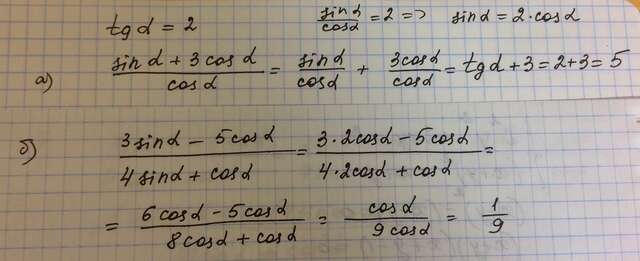 tg α = 2 sin α / cos α = 2 => sin α = 2 · cos α
а) (sin α + 3 cos α) / cos α = sin α / cos α + 3 cos α / cos α = tg α + 3 = 2 + 3 = 5
б) (3 sin α − 5 cos α) / (4 sin α + cos α) = (3 · 2 cos α − 5 cos α) / (4 · 2 cos α + cos α) =
= (6 cos α − 5 cos α) / (8 cos α + cos α) = cos α / 9 cos α = 1 / 9